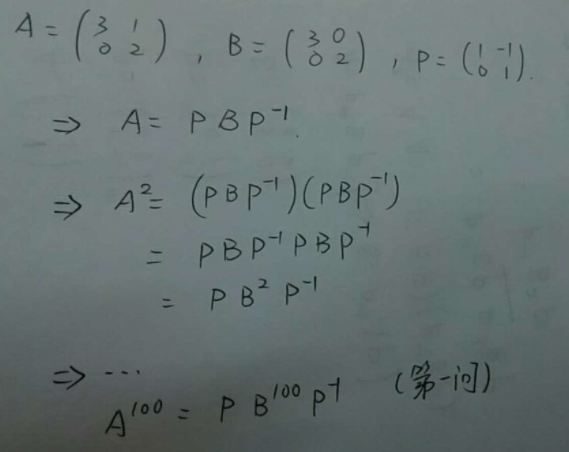 A = (3 1 0 2), B = (3 0 0 2), P = (1 -1 0 1).
⇒ A = P B P⁻¹.
⇒ A² = (P B P⁻¹)(P B P⁻¹)
= P B P⁻¹ P B P⁻¹
= P B² P⁻¹
⇒ ...
A¹⁰⁰ = P B¹⁰⁰ P⁻¹ (第一问)